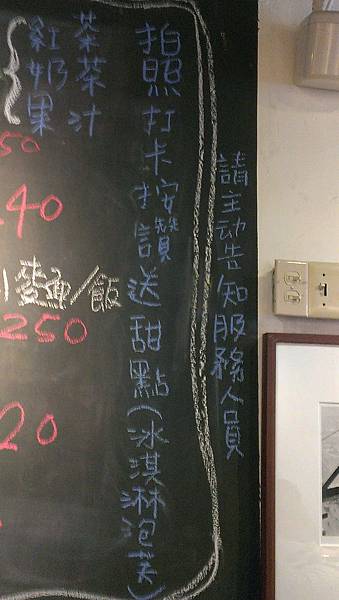 請主动告知服務人員
拍照打卡按讚送甜點(冰淇淋泡芙)
紅茶
奶茶
果汁
50
40
麥魚/飯
250
20